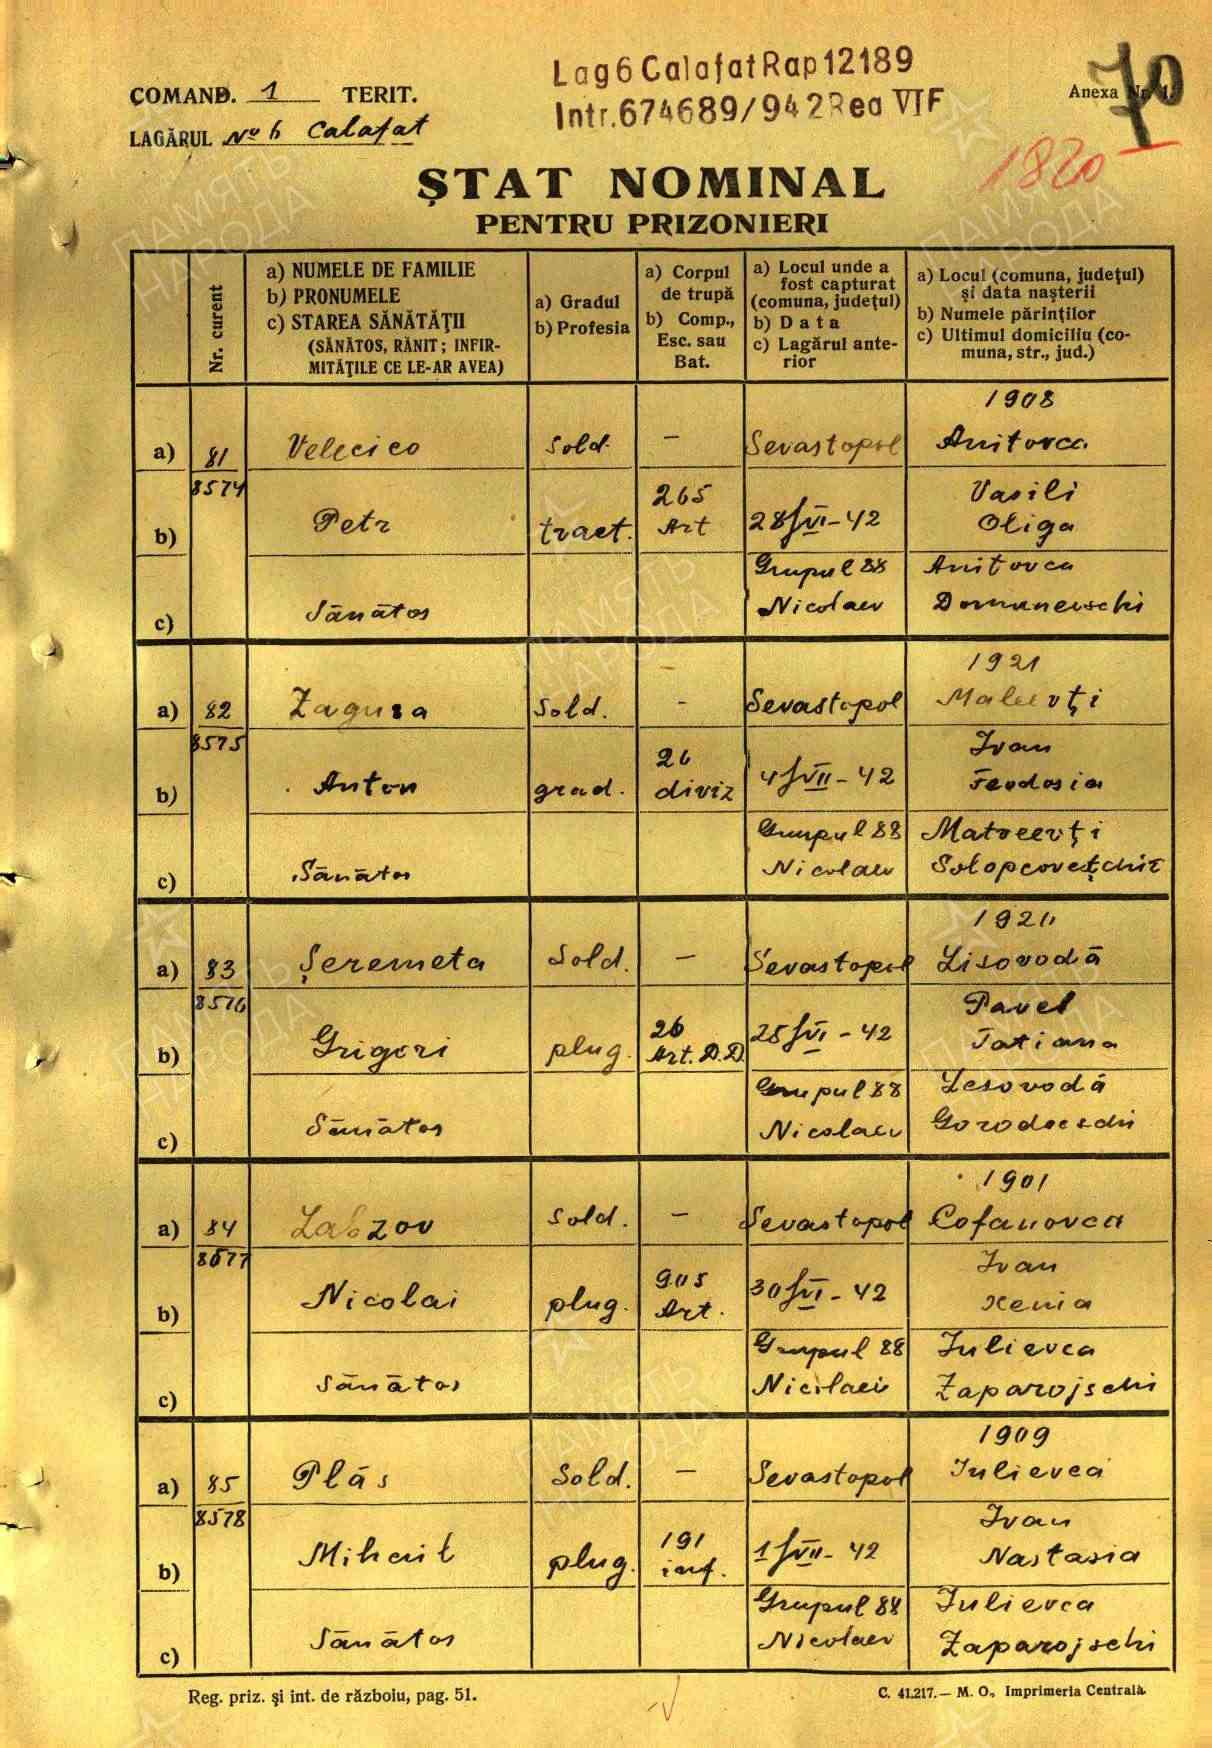 Lag 6 Calafat Rap 12189
Intr. 674689/942 Rea VI F
COMAND. 1 TERIT.
LAGĂRUL No 6 Calafat
Anexa Nr. 1.
70
1820
ȘTAT NOMINAL
PENTRU PRIZONIERI
Nr. curent
a) NUMELE DE FAMILIE
b) PRONUMELE
c) STAREA SĂNĂTĂȚII
(SĂNĂTOS, RĂNIT; INFIR-
MITĂȚILE CE LE-AR AVEA)
a) Gradul
b) Profesia
a) Corpul
de trupă
b) Comp.,
Esc. sau
Bat.
a) Locul unde a
fost capturat
(comuna, județul)
b) Data
c) Lagărul ante-
rior
a) Locul (comuna, județul)
și data nașterii
b) Numele părinților
c) Ultimul domiciliu (co-
muna, str., jud.)
1908
a) 81 Velicico Sold. — Sevastopol Anitovca
8574
b) Petr tract. 265 Art 28/VI-42 Vasili
Oliga
c) Sănătos Grupul 88 Anitovca
Nicolaev Domanevschi
1921
a) 82 Zagura Sold. - Sevastopol
8575
b) Anton grad. 26 diviz 4/VII-42 Ivan
Feodosia
c) Sănătos Grupul 88 Matveevți
Nicolaev
a) 83 Șeremeta Sold. — Sevastopol Lisovodă
8576
b) Grigori plug. 26 Art. D.D. 28/VI-42 Pavel
Tatiana
c) Sănătos Grupul 88 Lesovodă
Nicolaev Gorodocschi
1901
a) 84 Labzov Sold. — Sevastopol Cofanovca
8577
b) Nicolai plug. 905 Art. 30/VI-42 Ivan
Xenia
c) Sănătos Grupul 88 Iulievca
Nicolaev Zaparojschi
1909
a) 85 Plăs Sold. — Sevastopol Iulievca
8578
b) Mihail plug. 191 inf. 1/VII-42 Ivan
Nastasia
c) Sănătos Grupul 88 Iulievca
Nicolaev Zaparojschi
Reg. priz. și int. de războiu, pag. 51.
C. 41.217.— M. O., Imprimeria Centrală.
ПАМЯТЬ
НАРОДА